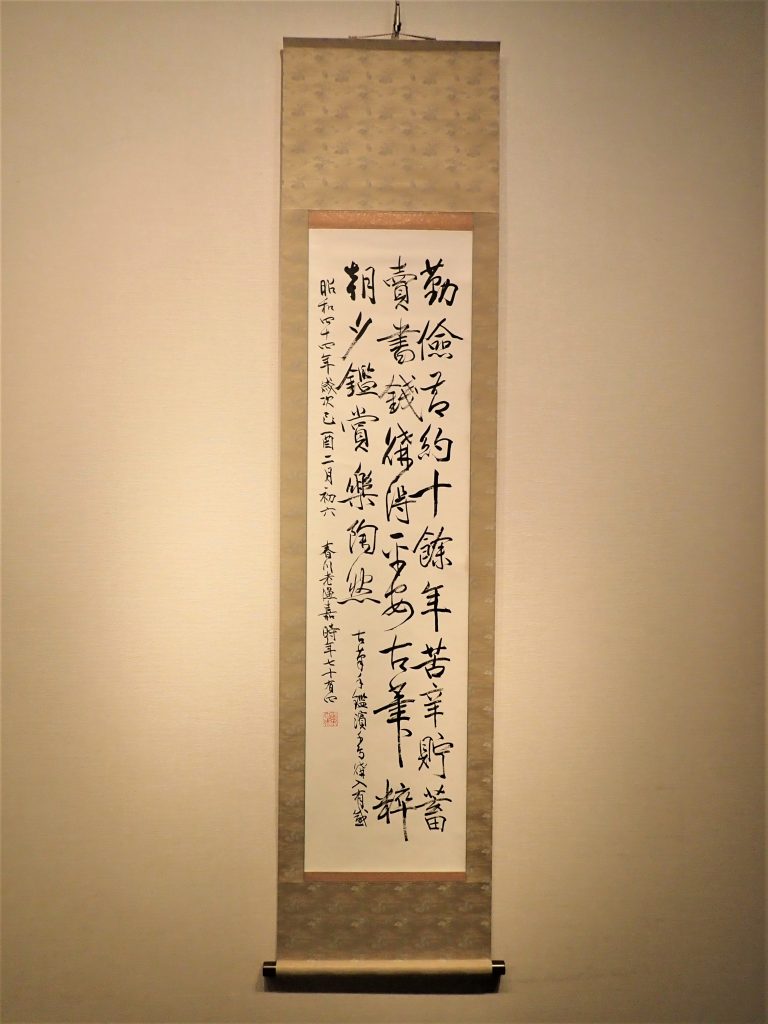 勤儉節約十餘年苦辛貯蓄
賣書錢購得平安古筆粹
朝夕鑑賞樂陶然 古筆手鑑濱千鳥購入有感
昭和四十四年歳次己酉二月初六 春川老漁嘉時年七十有四